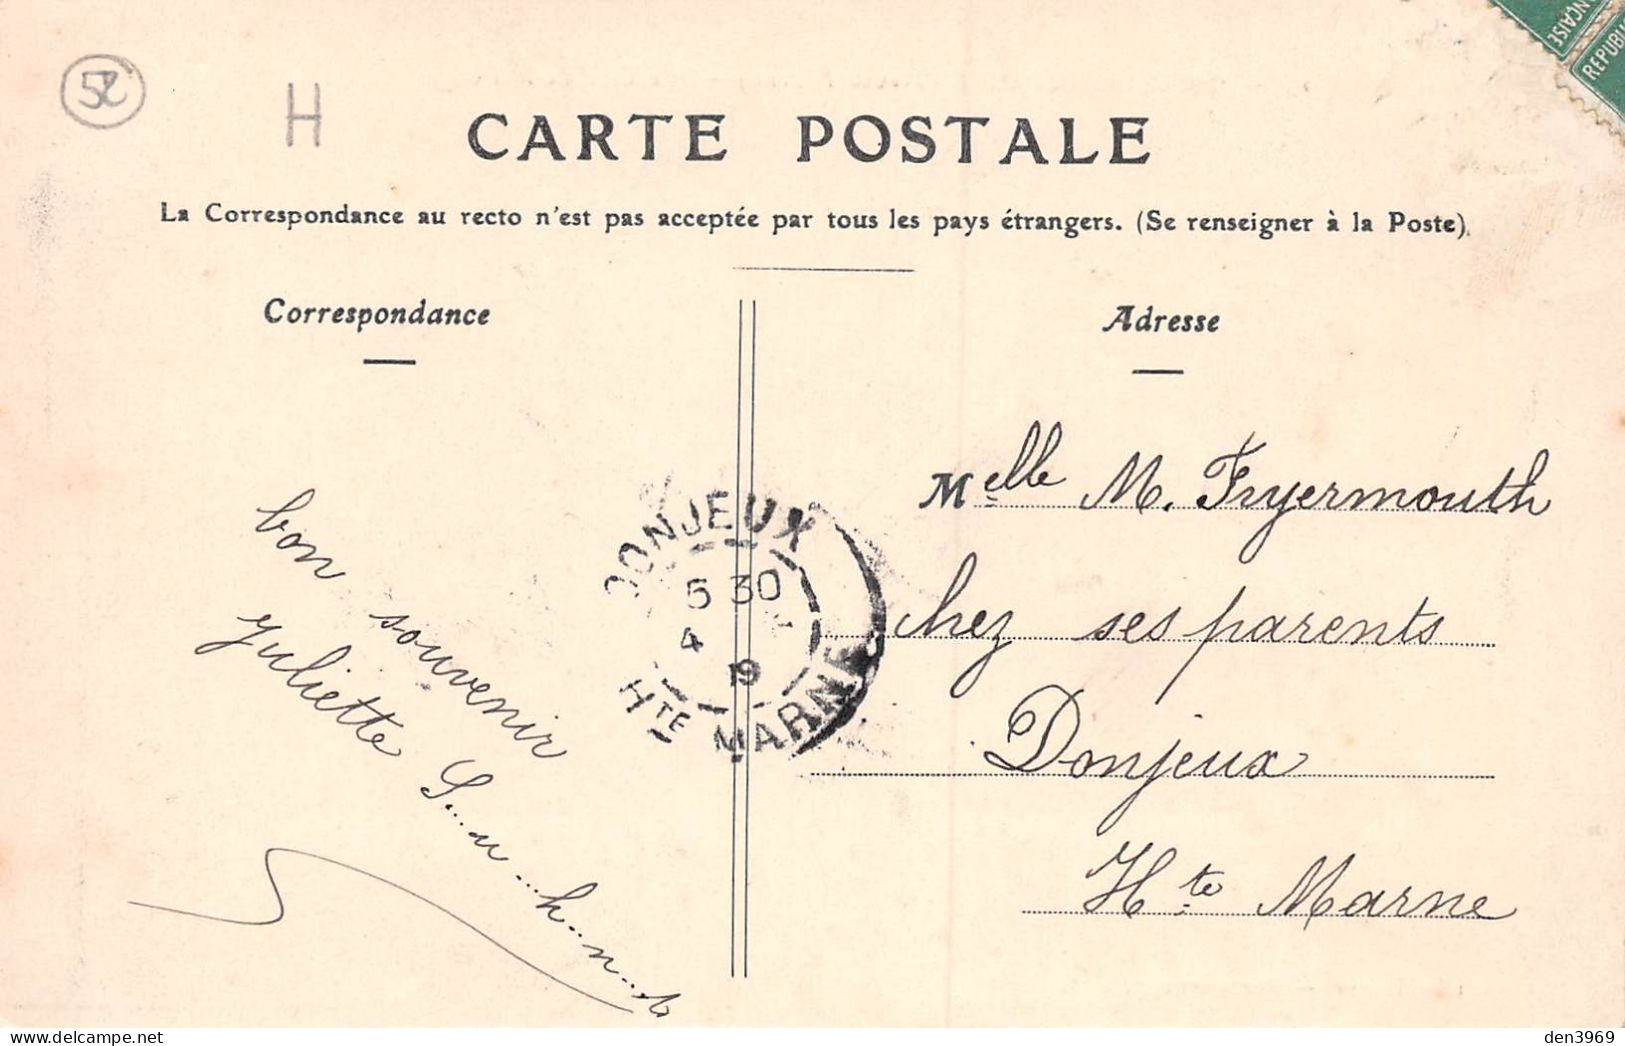 52
H
FRANÇAISE
REPUBL
CARTE POSTALE
La Correspondance au recto n'est pas acceptée par tous les pays étrangers. (Se renseigner à la Poste).
Correspondance
Adresse
bon souvenir
Juliette S...u...h..n..t
DONJEUX
5 30
4
19
HTE MARNE
Melle M. Fryermouth
chez ses parents
Donjeux
Hte Marne
den3969